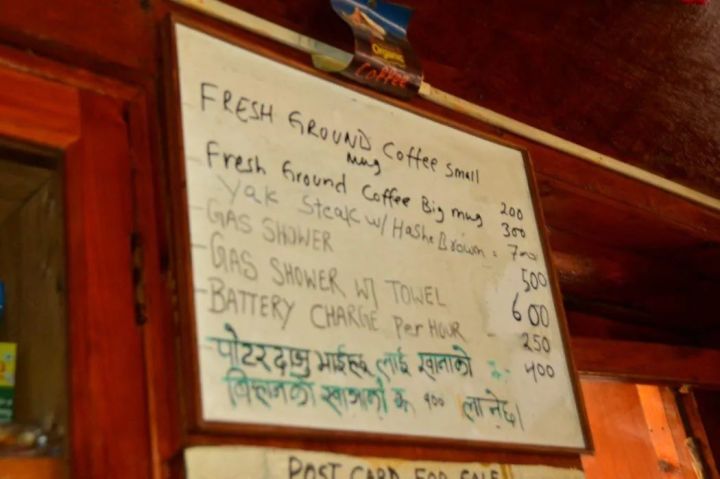 Organic
COFFEE
FRESH GROUND Coffee Small mug 200
Fresh Ground Coffee Big mug 300
Yak Steak w/ Hashe Brown = 700
-GAS SHOWER 500
-GAS SHOWER W/ TOWEL 600
-BATTERY CHARGE Per HOUR - 250
-पोटर दाजु भाईहरू लाई खानाको 400
खानाको रू ४०० लाग्नेछ।
POST CARD FOR SALE